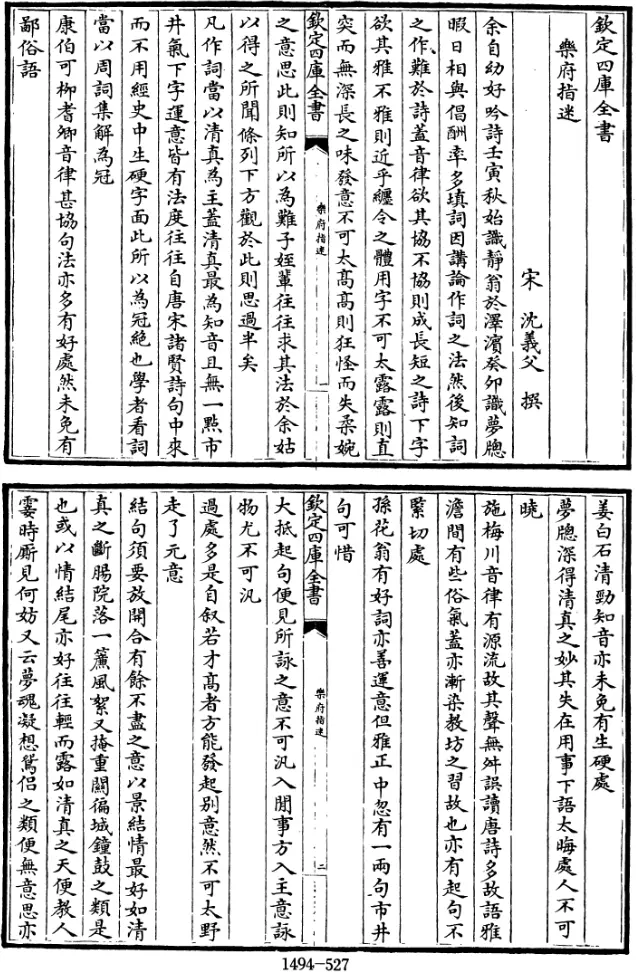 欽定四庫全書
樂府指迷
宋 沈義父 撰
余自幼好吟詩壬寅秋始識靜翁於澤濱癸卯識夢牕
暇日相與倡酬率多填詞因講論作詞之法然後知詞
之作難於詩蓋音律欲其協不協則成長短之詩下字
欲其雅不雅則近乎纏令之體用字不可太露露則直
突而無深長之味發意不可太髙髙則狂怪而失柔婉
欽定四庫全書
樂府指迷
一
之意思此則知所以為難子姪輩往往求其法於余姑
以得之所聞條列下方觀於此則思過半矣
凡作詞當以清真為主蓋清真最為知音且無一點市
井氣下字運意皆有法度往往自唐宋諸賢詩句中來
而不用經史中生硬字面此所以為冠絶也學者看詞
當以周詞集解為冠
康伯可栁耆卿音律甚協句法亦多有好處然未免有
鄙俗語
姜白石清勁知音亦未免有生硬處
夢牕深得清真之妙其失在用事下語太晦處人不可
曉
施梅川音律有源流故其聲無舛誤讀唐詩多故語雅
澹間有些俗氣蓋亦漸染教坊之習故也亦有起句不
緊切處
孫花翁有好詞亦善運意但雅正中忽有一兩句市井
句可惜
欽定四庫全書
樂府指迷
二
大抵起句便見所詠之意不可汎入閒事方入主意詠
物尤不可汎
過處多是自叙若才高者方能發起别意然不可太野
走了元意
結句須要放開合有餘不盡之意以景結情最好如清
真之斷腸院落一簾風絮又掩重關徧城鐘鼓之類是
也或以情結尾亦好往往輕而露如清真之天便教人
霎時厮見何妨又云夢魂凝想鴛侣之類便無意思亦
1494—527